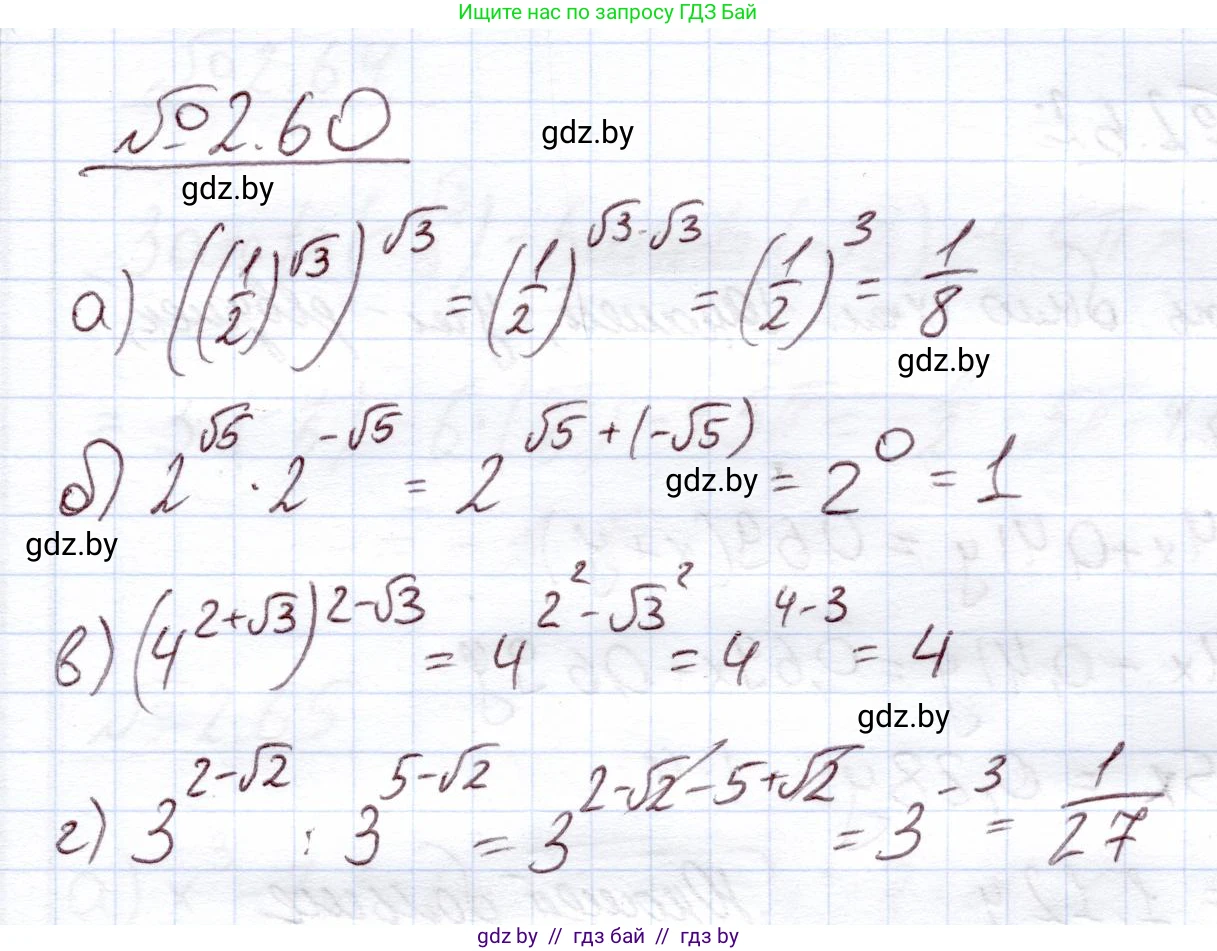 Ищите нас по запросу ГДЗ Бай
№2.60
gdz.by
gdz.by
а) ((1/2)^√3)^√3 = (1/2)^(√3·√3) = (1/2)^3 = 1/8
gdz.by
б) 2^√5 · 2^(-√5) = 2^(√5+(-√5)) = 2^0 = 1
gdz.by
gdz.by
в) (4^(2+√3))^(2-√3) = 4^(2²-√3²) = 4^(4-3) = 4
gdz.by
г) 3^(2-√2) : 3^(5-√2) = 3^(2-√2-5+√2) = 3^(-3) = 1/27
gdz.by // гдз бай // gdz.by